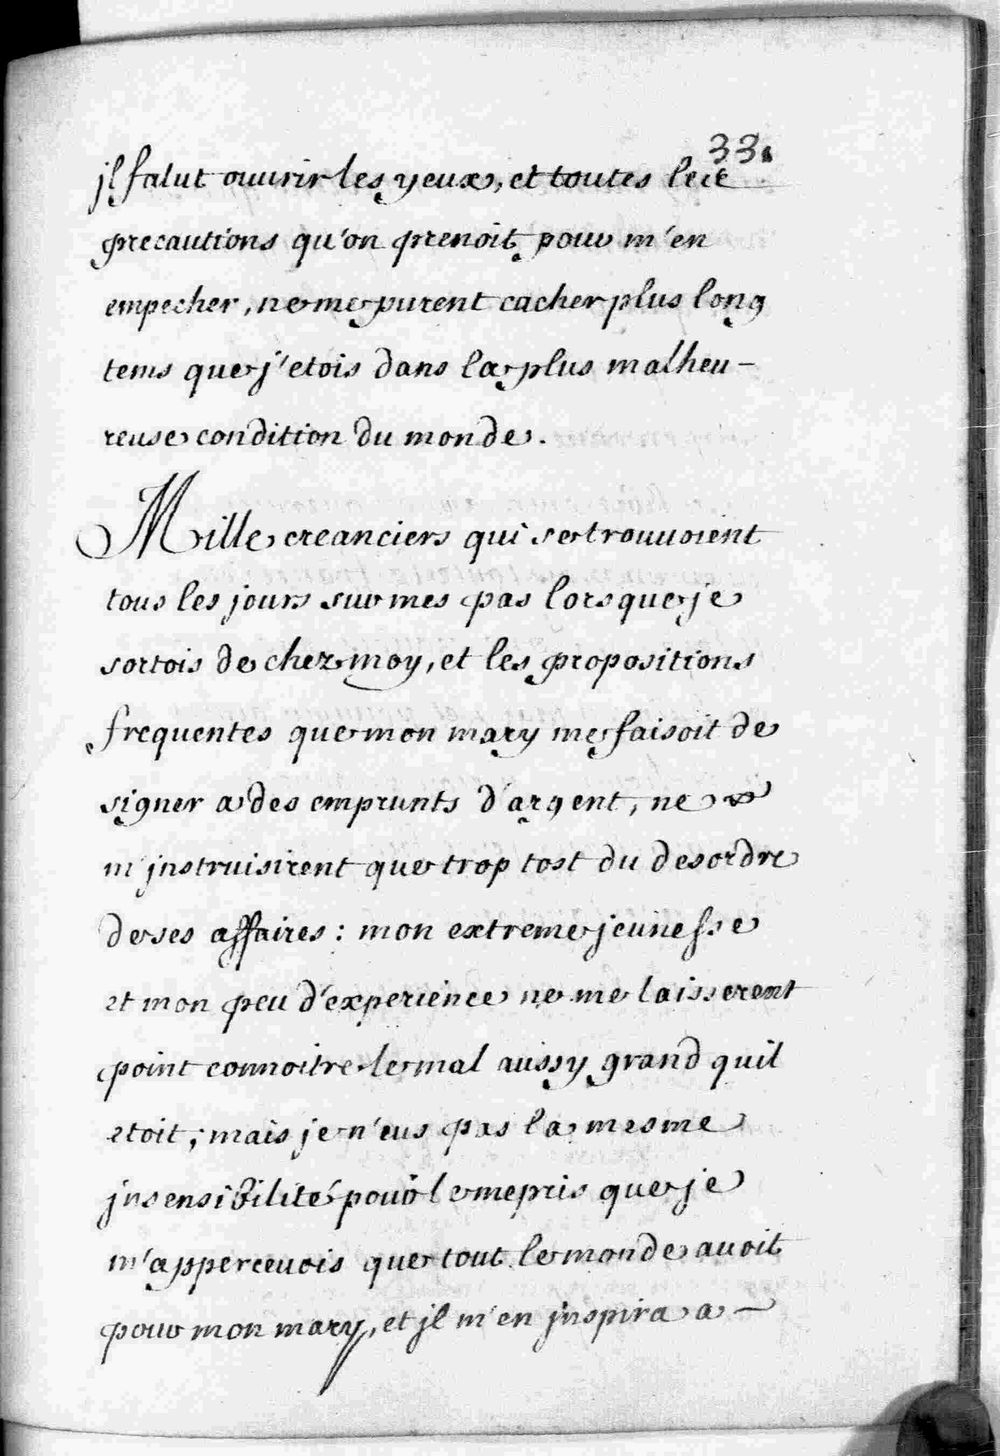 33.
jl falut ouurir les yeux, et toutes les
precautions qu'on prenoit pour m'en
empecher, ne me purent cacher plus long
tems que j'etois dans la plus malheu-
reuse condition du monde.
Mille creanciers qui se trouuoient
tous les jours sur mes pas lorsque je
sortois de chez moy, et les propositions
frequentes que mon mary me faisoit de
signer a des emprunts d'argent, ne
m'jnstruisirent que trop tost du desordre
de ses affaires : mon extreme jeunesse
et mon peu d'experience ne me laisserent
point connoitre le mal aussy grand quil
etoit ; mais je n'eus pas la mesme
jnsensibilité pour le mepris que je
m'apperceuois que tout le monde auoit
pour mon mary, et jl m'en jnspira a -